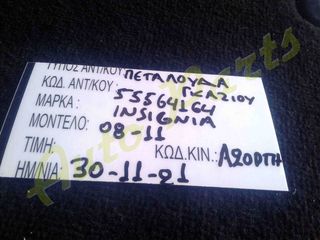 ΤΥΠΟΣ ΑΝΤ/ΚΟΥ: ΠΕΤΑΛΟΥΔΑ
ΓΚΑΖΙΟΥ
ΚΩΔ. ΑΝΤ/ΚΟΥ: 55564164
ΜΑΡΚΑ : INSIGNIA
ΜΟΝΤΕΛΟ: 08-11
ΤΙΜΗ: ΚΩΔ.ΚΙΝ.: A20DTH
ΗΜ/ΝΙΑ: 30-11-21
Auto Parts